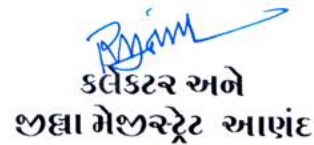 કલેકટર અને
જીલ્લા મેજીસ્ટ્રેટ આણંદ